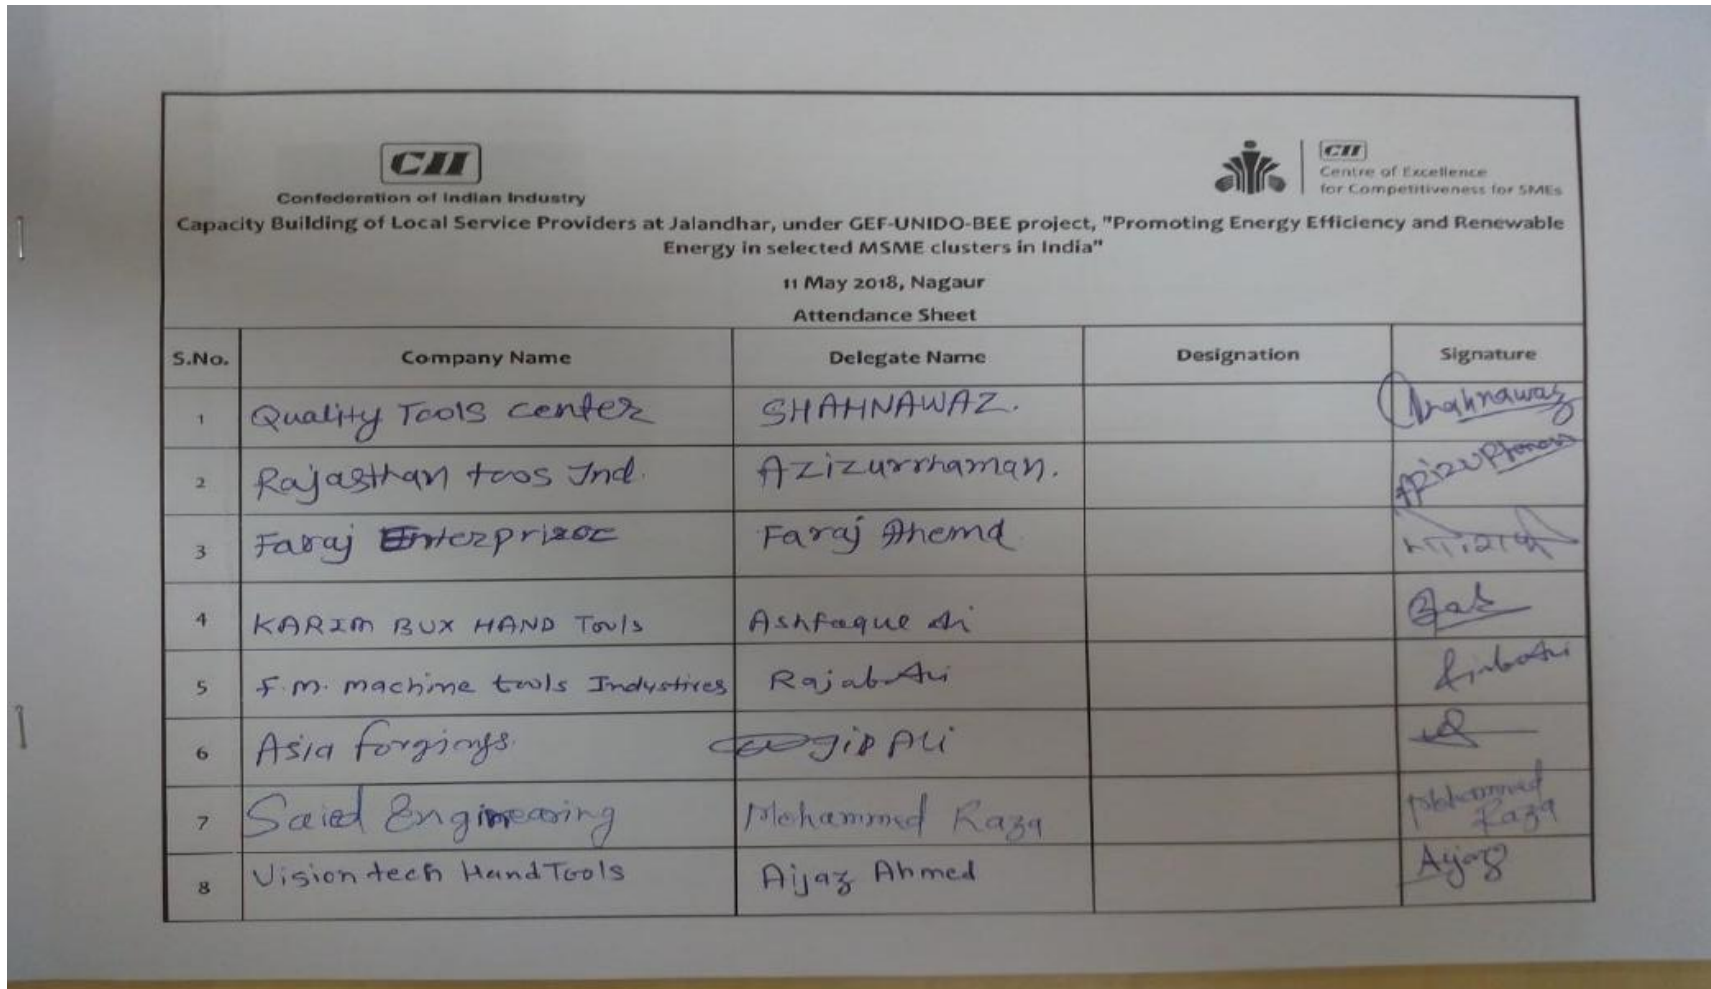 CII
Confederation of Indian Industry
CII
Centre of Excellence
for Competitiveness for SMEs
Capacity Building of Local Service Providers at Jalandhar, under GEF-UNIDO-BEE project, "Promoting Energy Efficiency and Renewable
Energy in selected MSME clusters in India"
11 May 2018, Nagaur
Attendance Sheet
S.No. Company Name Delegate Name Designation Signature
1 Quality Tools center SHAHNAWAZ. Shahnawaz
2 Rajasthan toos Ind. Azizurrhaman.
3 Faraj Enterprizec Faraj Ahemd
4 KARIM BUX HAND Tools Ashfaque Ali
5 F.M. machine tools Industires Rajab Ali
6 Asia forgings Ali
7 Saied Engineering Mohammed Raza Mohammed Raza
8 Vision tech Hand Tools Aijaz Ahmed Aijaz